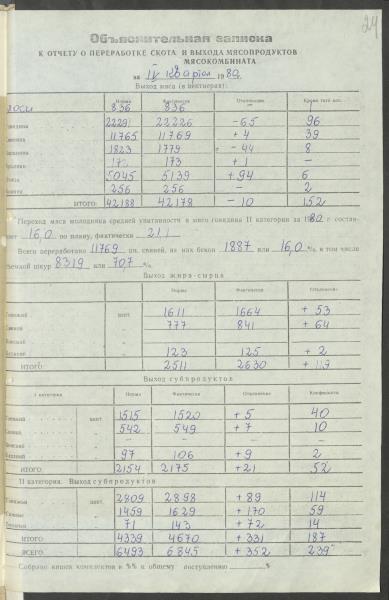 24
Объяснительная записка
К ОТЧЕТУ О ПЕРЕРАБОТКЕ СКОТА И ВЫХОДА МЯСОПРОДУКТОВ
МЯСОКОМБИНАТА
за IV квартал 1980 г.
Выход мяса (в центнерах):
Норма Фактически Отклонение Кроме того
836 836
22291 22226 -65 96
11765 11769 +4 39
1823 1779 -44 8
173 +1 –
5045 5139 +94 6
256 256 – 2
ИТОГО: 42188 42178 – 10 152
Переход мяса молодняка средней упитанности в мясо говядина II категории за 1980 г. состав-
16,0 по плану, фактически 21,1
Всего переработано 11769 цн. свиней, из них бекон 1887 или 16,0 %, в том числе
шкур 8319 или 70,7 %.
Выход жира-сырца
Норма Фактически Отклонение
цент. 1611 1664 + 53
777 841 + 64
123 125 + 2
ИТОГО: 2511 2630
Выход субпродуктов
I категория Норма Фактически Отклонение
цент. 1515 1520 +5 40
542 549 +7 10
– – – –
97 106 +9 2
ИТОГО: 2154 2175 +21 52
II категория. Выход субпродуктов
цент. 2809 2898 + 89 114
1459 1629 + 170 59
71 143 + 72 14
ИТОГО 4339 4670 + 331 187
ВСЕГО: 6493 6845 + 352 239
Собрано кишок комплектов в %% к общему поступлению %